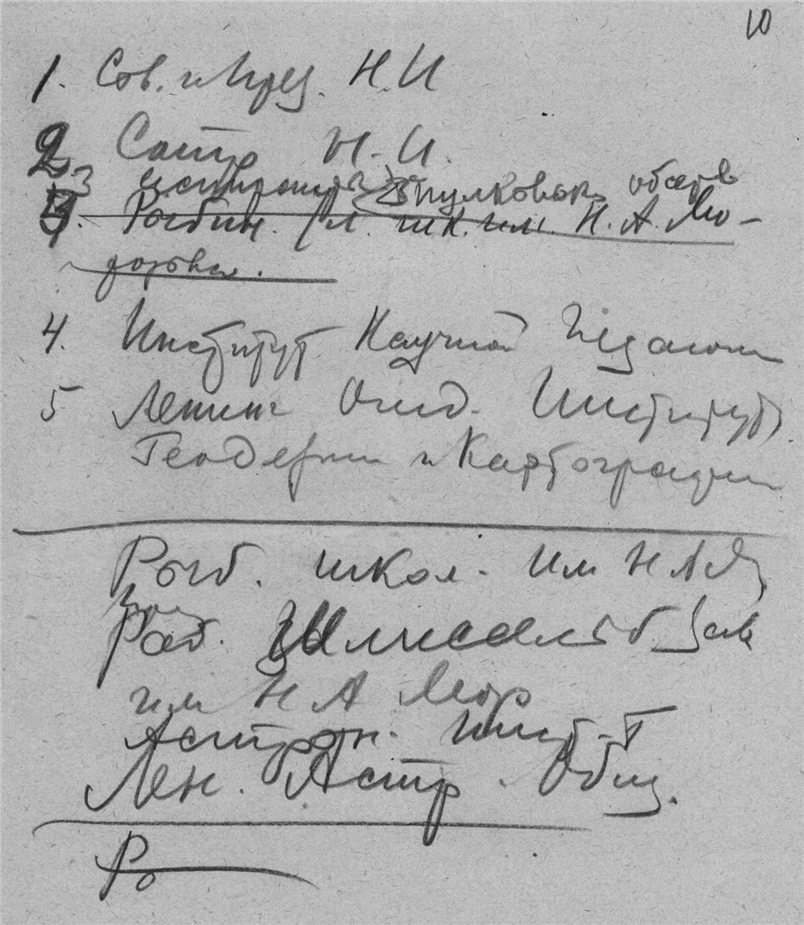 10
1. Сов. и През. Н. И
2 Сотр Н. И.
3 Пулковск обсерв
Рыбин. шк. им. Н. А. Мо-
розова.
4. Институт Научной Педагогики
5 Ленинг Отд. Института
Геодезии и Картографии
Рыб. школ. Им Н А М
Раб.
им Н А Мор
Астрон. Инст-т
Лен. Астр. Общ.
Р